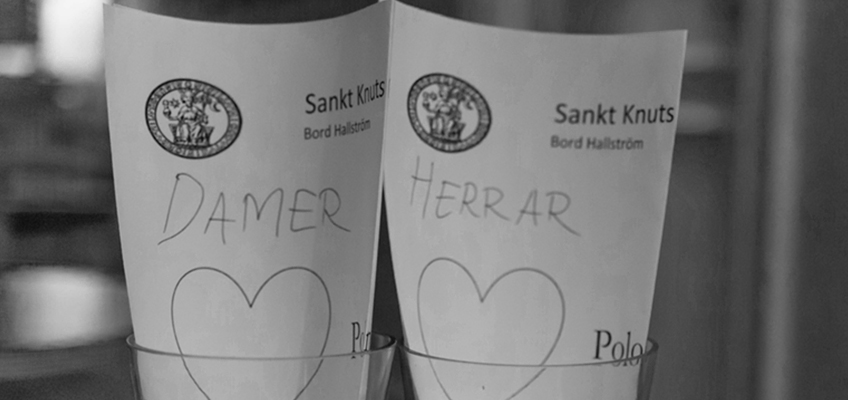 Sankt Knuts
Bord Hallström
DAMER
Sankt Knuts
Bord Hallström
HERRAR
Polo